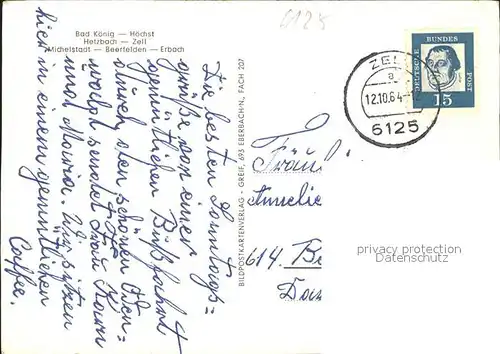 6125
Bad König — Höchst
Hetzbach — Zell
Michelstadt — Beerfelden — Erbach
Die besten Sonntags=
grüße von einer
gemütlichen Bußfahrt
durch den schönen Oden=
wald sendet Frau
und Maria. Wir sitzen
hier in einem gemütlichen
Caffee.
BILDPOSTKARTENVERLAG - GREIF, 693 EBERBACH/N., FACH 207
DEUTSCHE BUNDES POST
15
ZELL
a
12.10.64
6125
Fräul
Annelie
614. B
privacy protection
Datenschutz